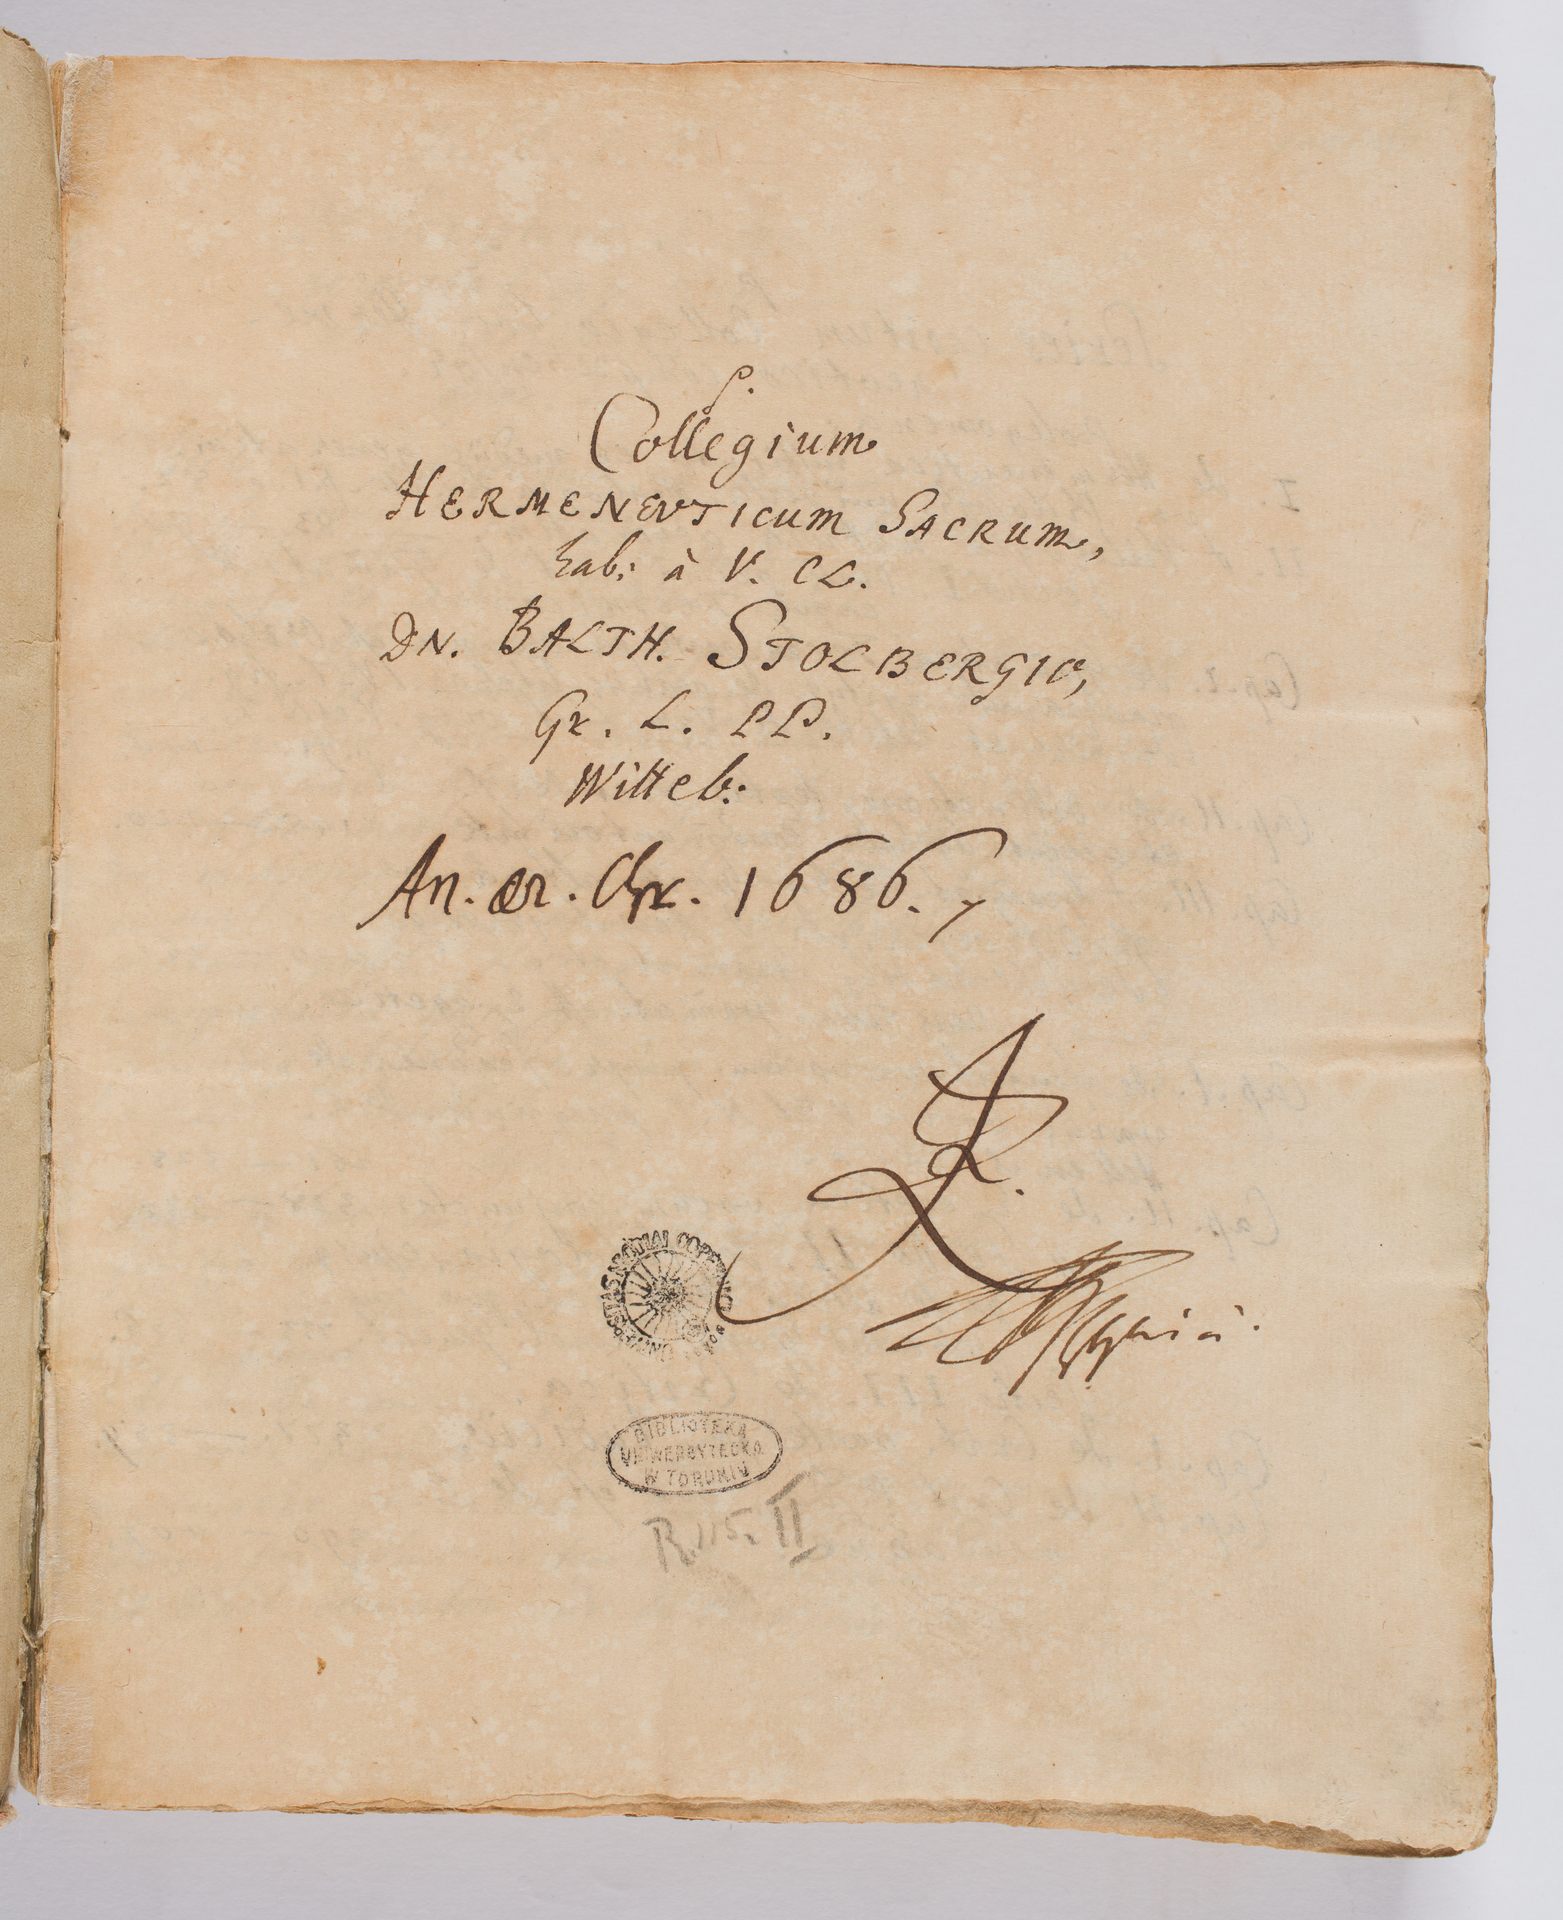 S.
Collegium
HERMENEVTICUM SACRUM,
hab: à V. CL.
DN. BALTH. STOLBERGIO,
Gr. L. PP.
Witteb:
An. ær. Chr. 1686.
BIBLIOTEKA
UNIWERSYTECKA
W TORUNIU
R. 115. II